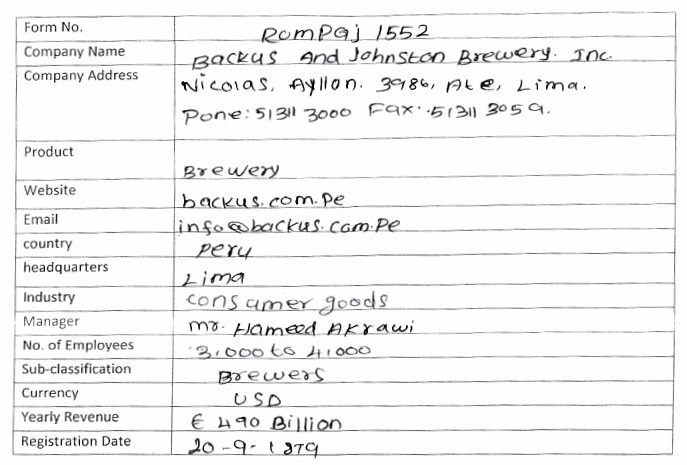 Form No. Rompaj 1552
Company Name Backus And Johnston Brewery. Inc.
Company Address Nicolas, Ayllon. 3986, Ate, Lima.
Pone: 51311 3000 Fax: 51311 3059.
Product Brewery
Website backus.com.Pe
Email info@backus.com.Pe
country Peru
headquarters Lima
Industry consumer goods
Manager mr. Hameed Akrawi
No. of Employees 3,000 to 4,000
Sub-classification Brewers
Currency USD
Yearly Revenue € 490 Billion
Registration Date 20-9-1879